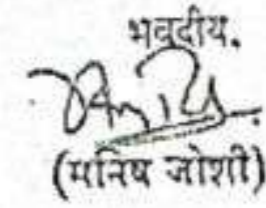 भवदीय.
(मनिष जोशी)